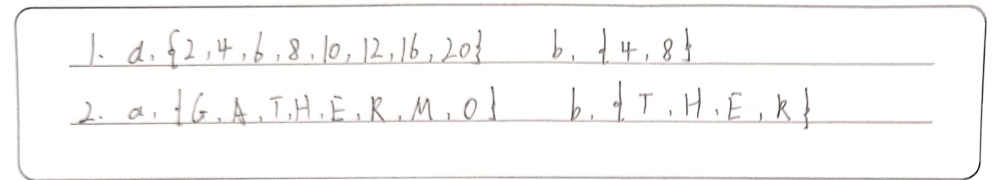 1. a. {2,4,6,8,10,12,16,20} b. {4,8}
2. a. {G,A,T,H,E,R,M,O} b. {T,H,E,R}